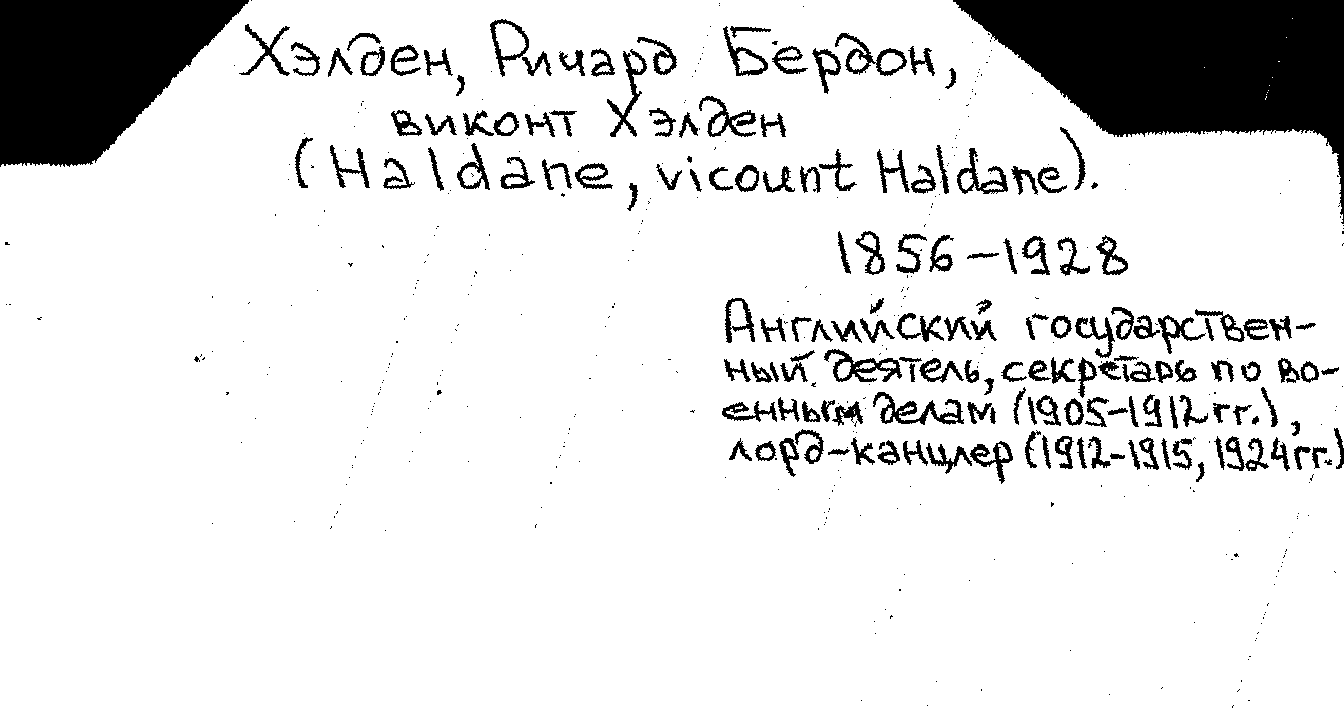 Хэлден, Ричард Бердон,
виконт Хэлден
(Haldane, vicount Haldane).
1856-1928
Английский государствен-
ный деятель, секретарь по во-
енным делам (1905-1912 гг.),
лорд-канцлер (1912-1915, 1924 гг.)